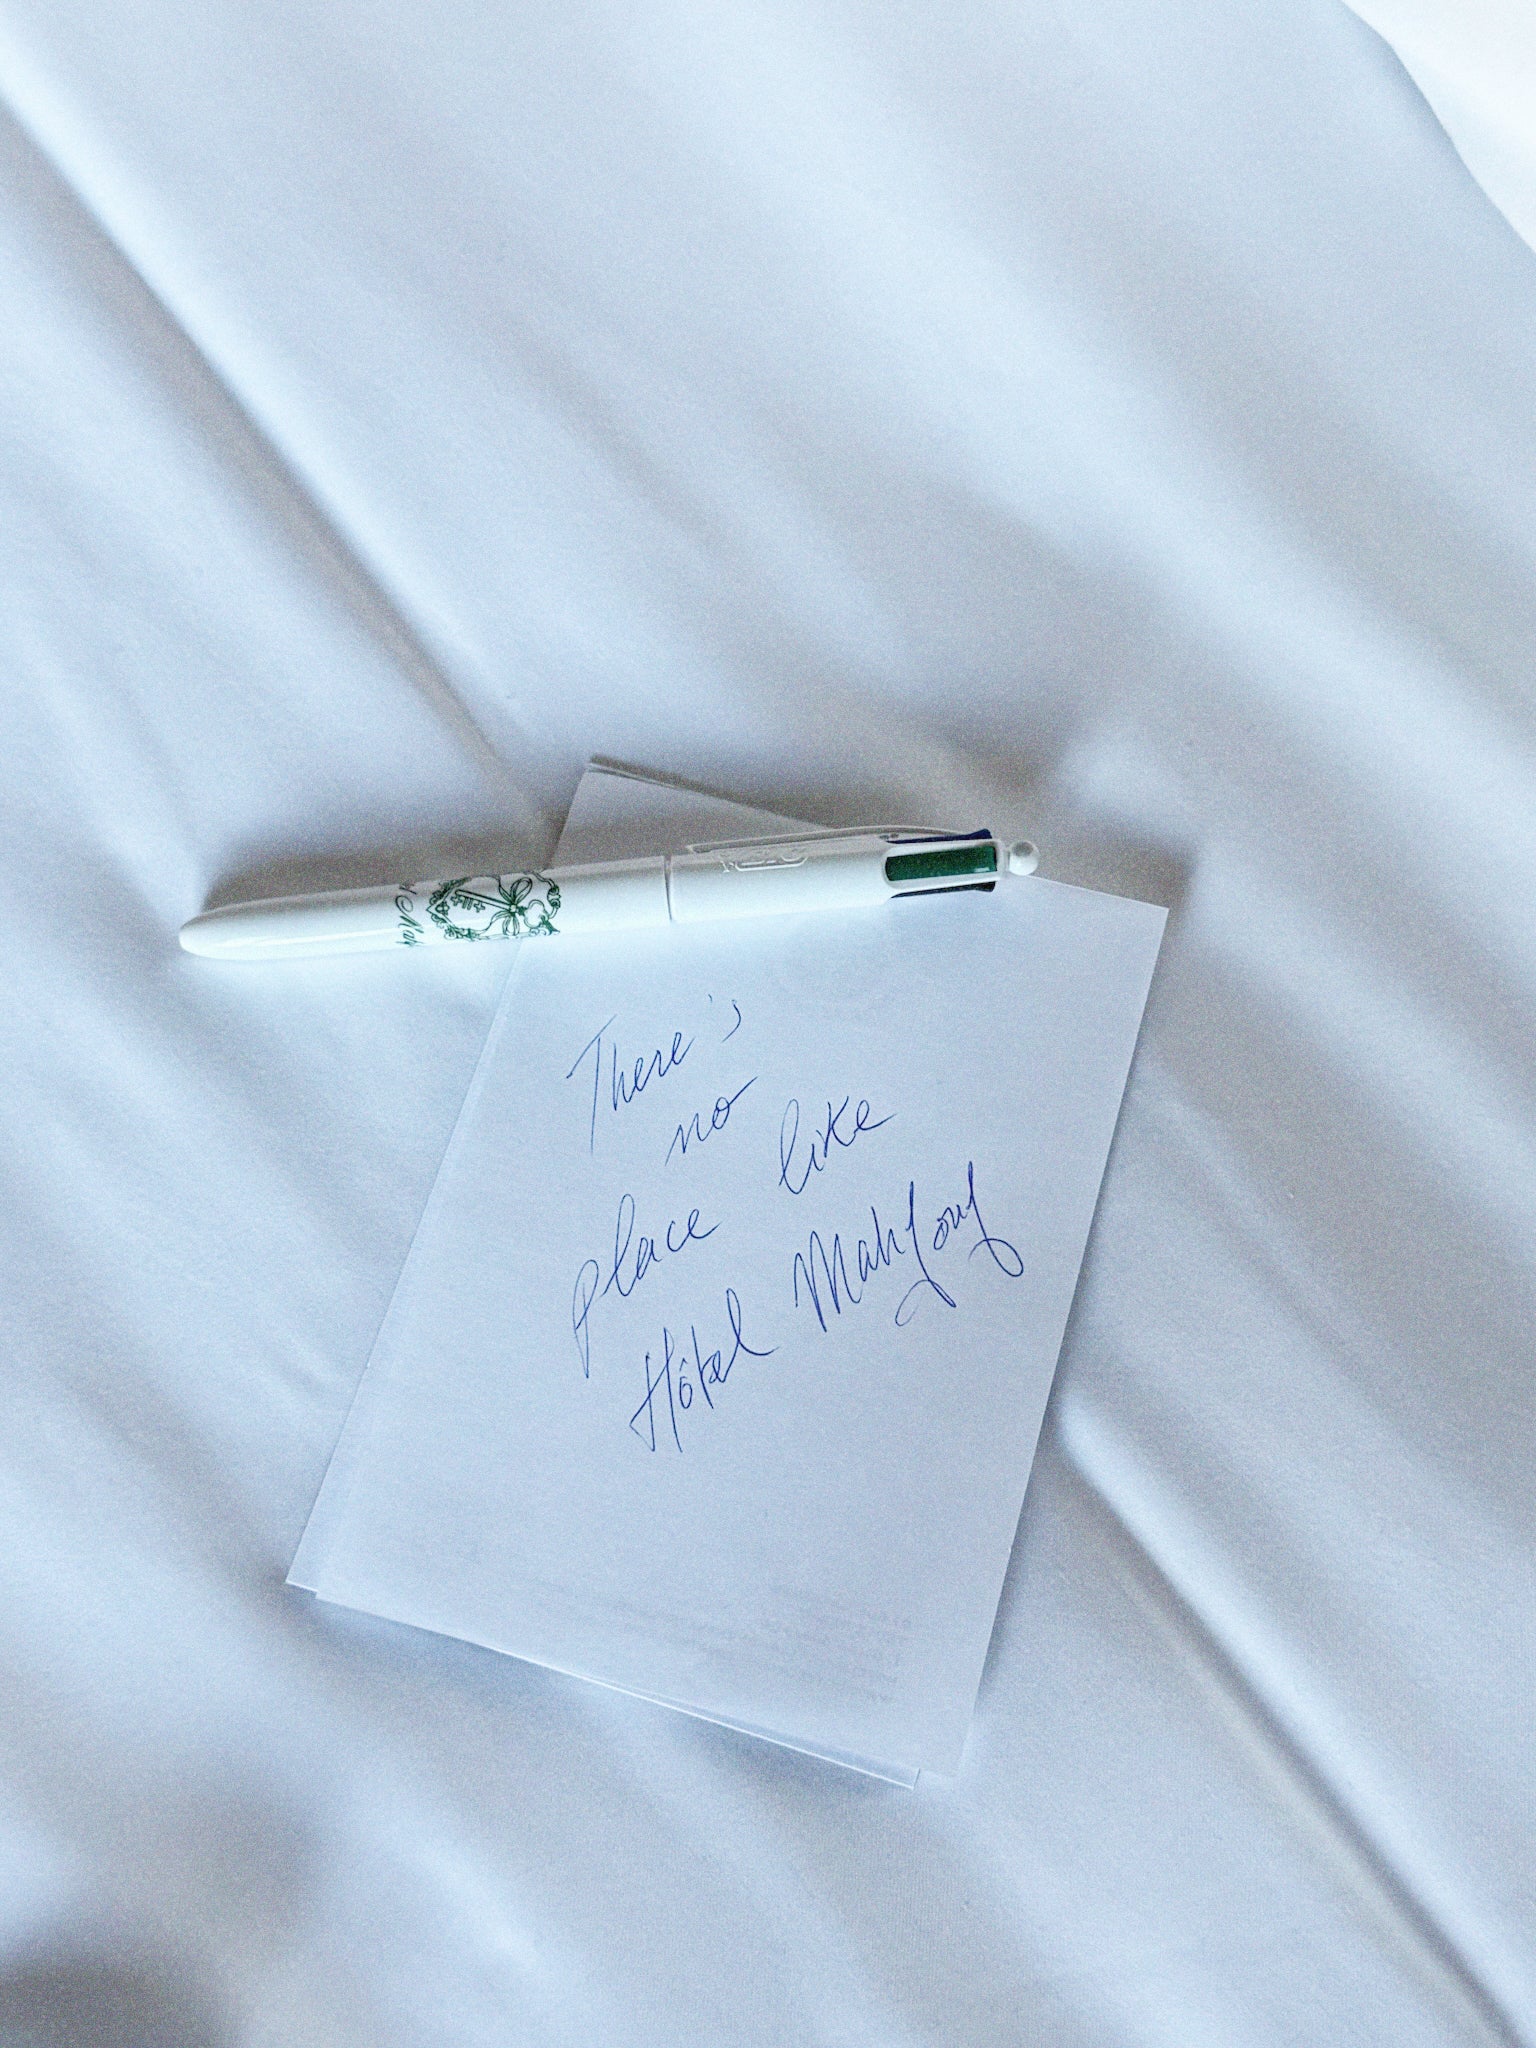 There's
no
place like
Hôtel Mahfouf